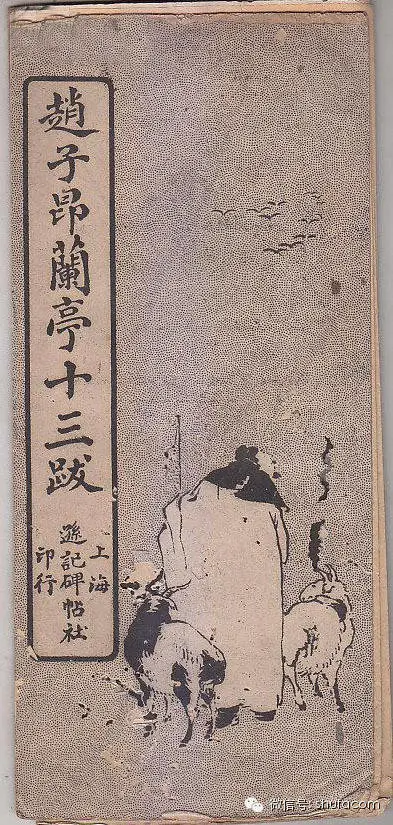 趙子昂蘭亭十三跋
上海
遜記碑帖社
印行
微信号: shufa.com